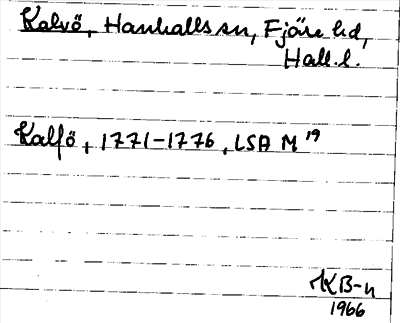 Kalvö, Hanhalls sn, Fjäre hd,
Hall. l.
Kalfö, 1771-1776, LSA M 19
KB-n
1966